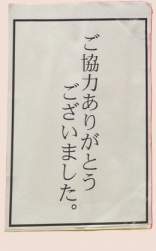 ご協力ありがとう
ございました。